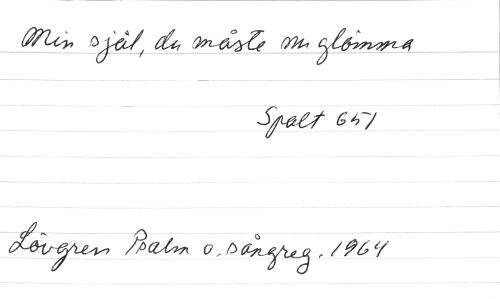 Min själ, du måste nu glömma
Spalt 651
Lövgren Psalm o. sångreg. 1964